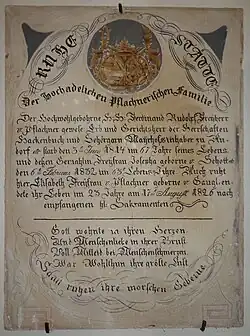 RUHE STÄTTE
Der Hochadelichen Pflachnerischen Familie
Der Hochwohlgebohrne H: H: Ferdinand Rudolf Freyherr
v: Pflachner gewese Erb und Gerichtsherr der Herrschaften
Hackenbuch und Lehörgarn Majoratsinhaber zu An-
dorf starb den 3ten 1814 im 67 Jahre seines Lebens.
und deßen Gemahlin Freyfrau Josepha geborne v: Schott
den 6ten Februar 1832 im 83ten Lebens Jahre. Auch ruht
hier Elisabeth Freyfrau v: Pflachner geborne v: Gaugl. en-
dete ihr Leben im 28 Jahre am 17ten August 1826 nach
empfangenen hl. Sakramenten
Gott wohnte in ihren Herzen
Und Menschenliebe in ihrer Brust
Voll Mitleid bei Menschenschmerzen
War Wohlthun ihre größte Lust
Sanft ruhen ihre morschen Gebeine